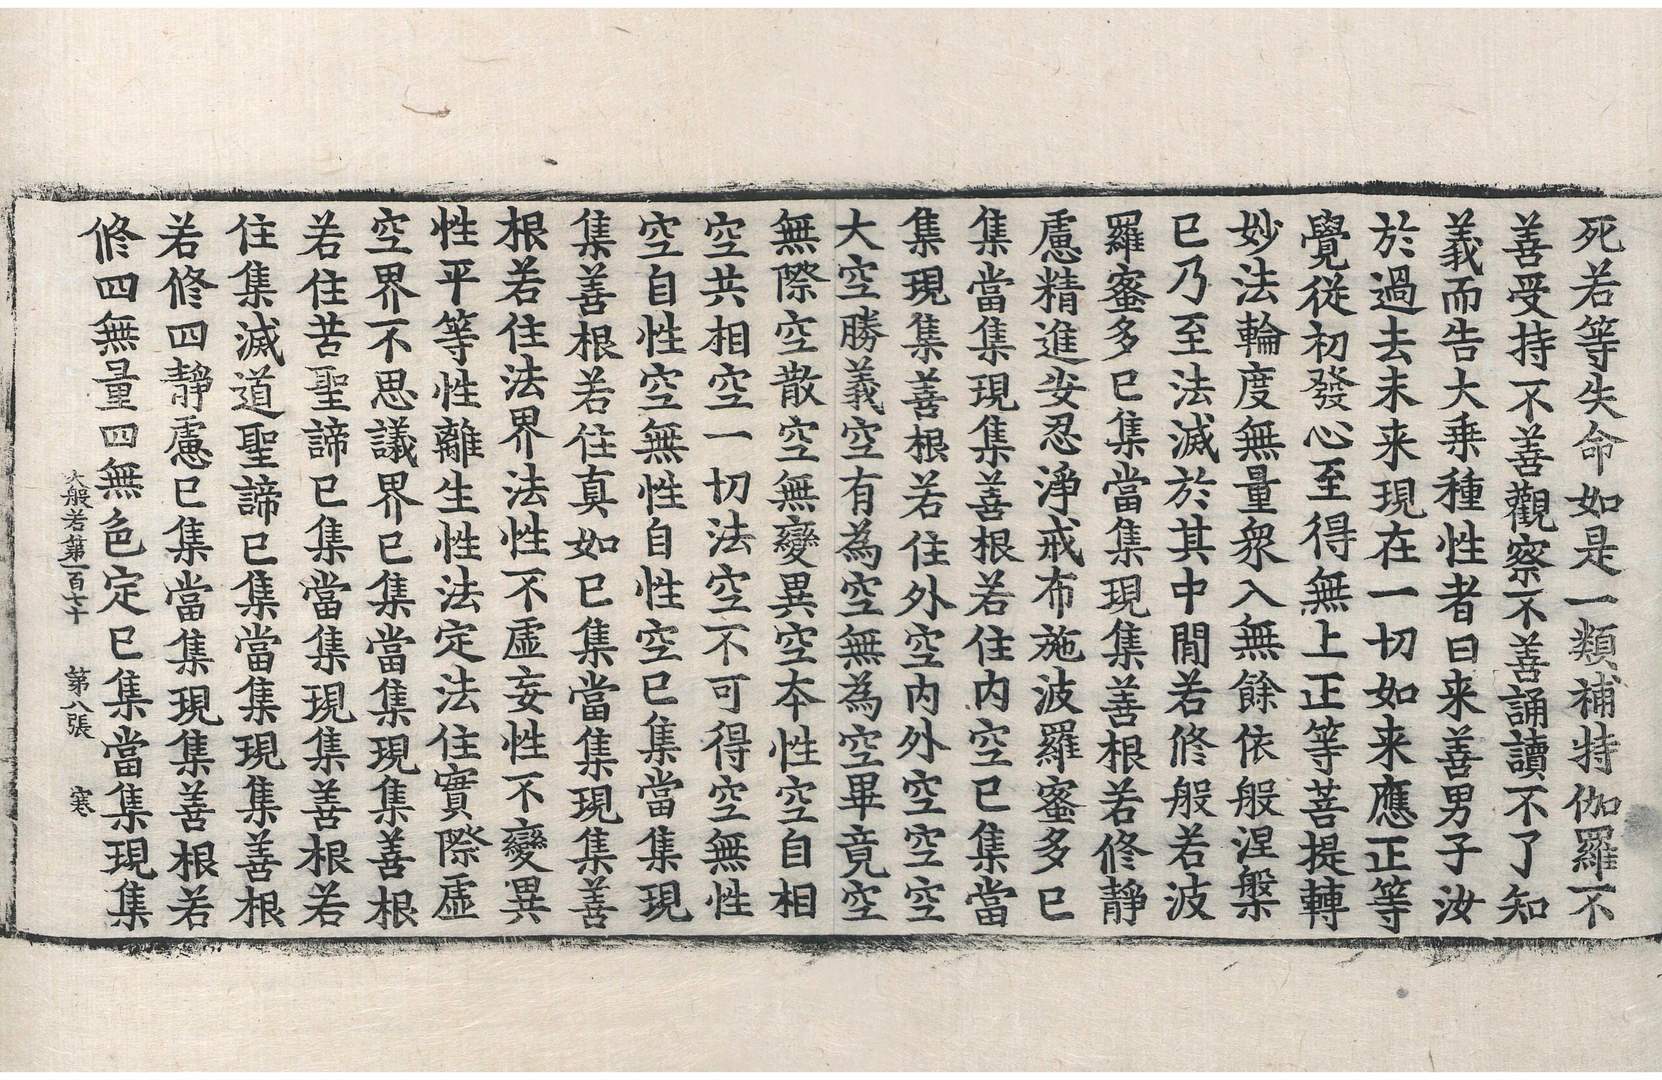 死若等失命如是一類補特伽羅不
善受持不善觀察不善誦讀不了知
義而告大乗種性者曰来善男子汝
於過去未来現在一切如来應正等
覺從初發心至得無上正等菩提轉
妙法輪度無量衆入無餘依般涅槃
已乃至法滅於其中閒若修般若波
羅蜜多已集當集現集善根若修靜
慮精進安忍淨戒布施波羅蜜多已
集當集現集善根若住内空已集當
集現集善根若住外空内外空空空
大空勝義空有為空無為空畢竟空
無際空散空無變異空本性空自相
空共相空一切法空不可得空無性
空自性空無性自性空已集當集現
集善根若住真如已集當集現集善
根若住法界法性不虛妄性不變異
性平等性離生性法定法住實際虛
空界不思議界已集當集現集善根
若住苦聖諦已集當集現集善根若
住集滅道聖諦已集當集現集善根
若修四靜慮已集當集現集善根若
修四無量四無色定已集當集現集
大般若第一百七十 第八張 寒